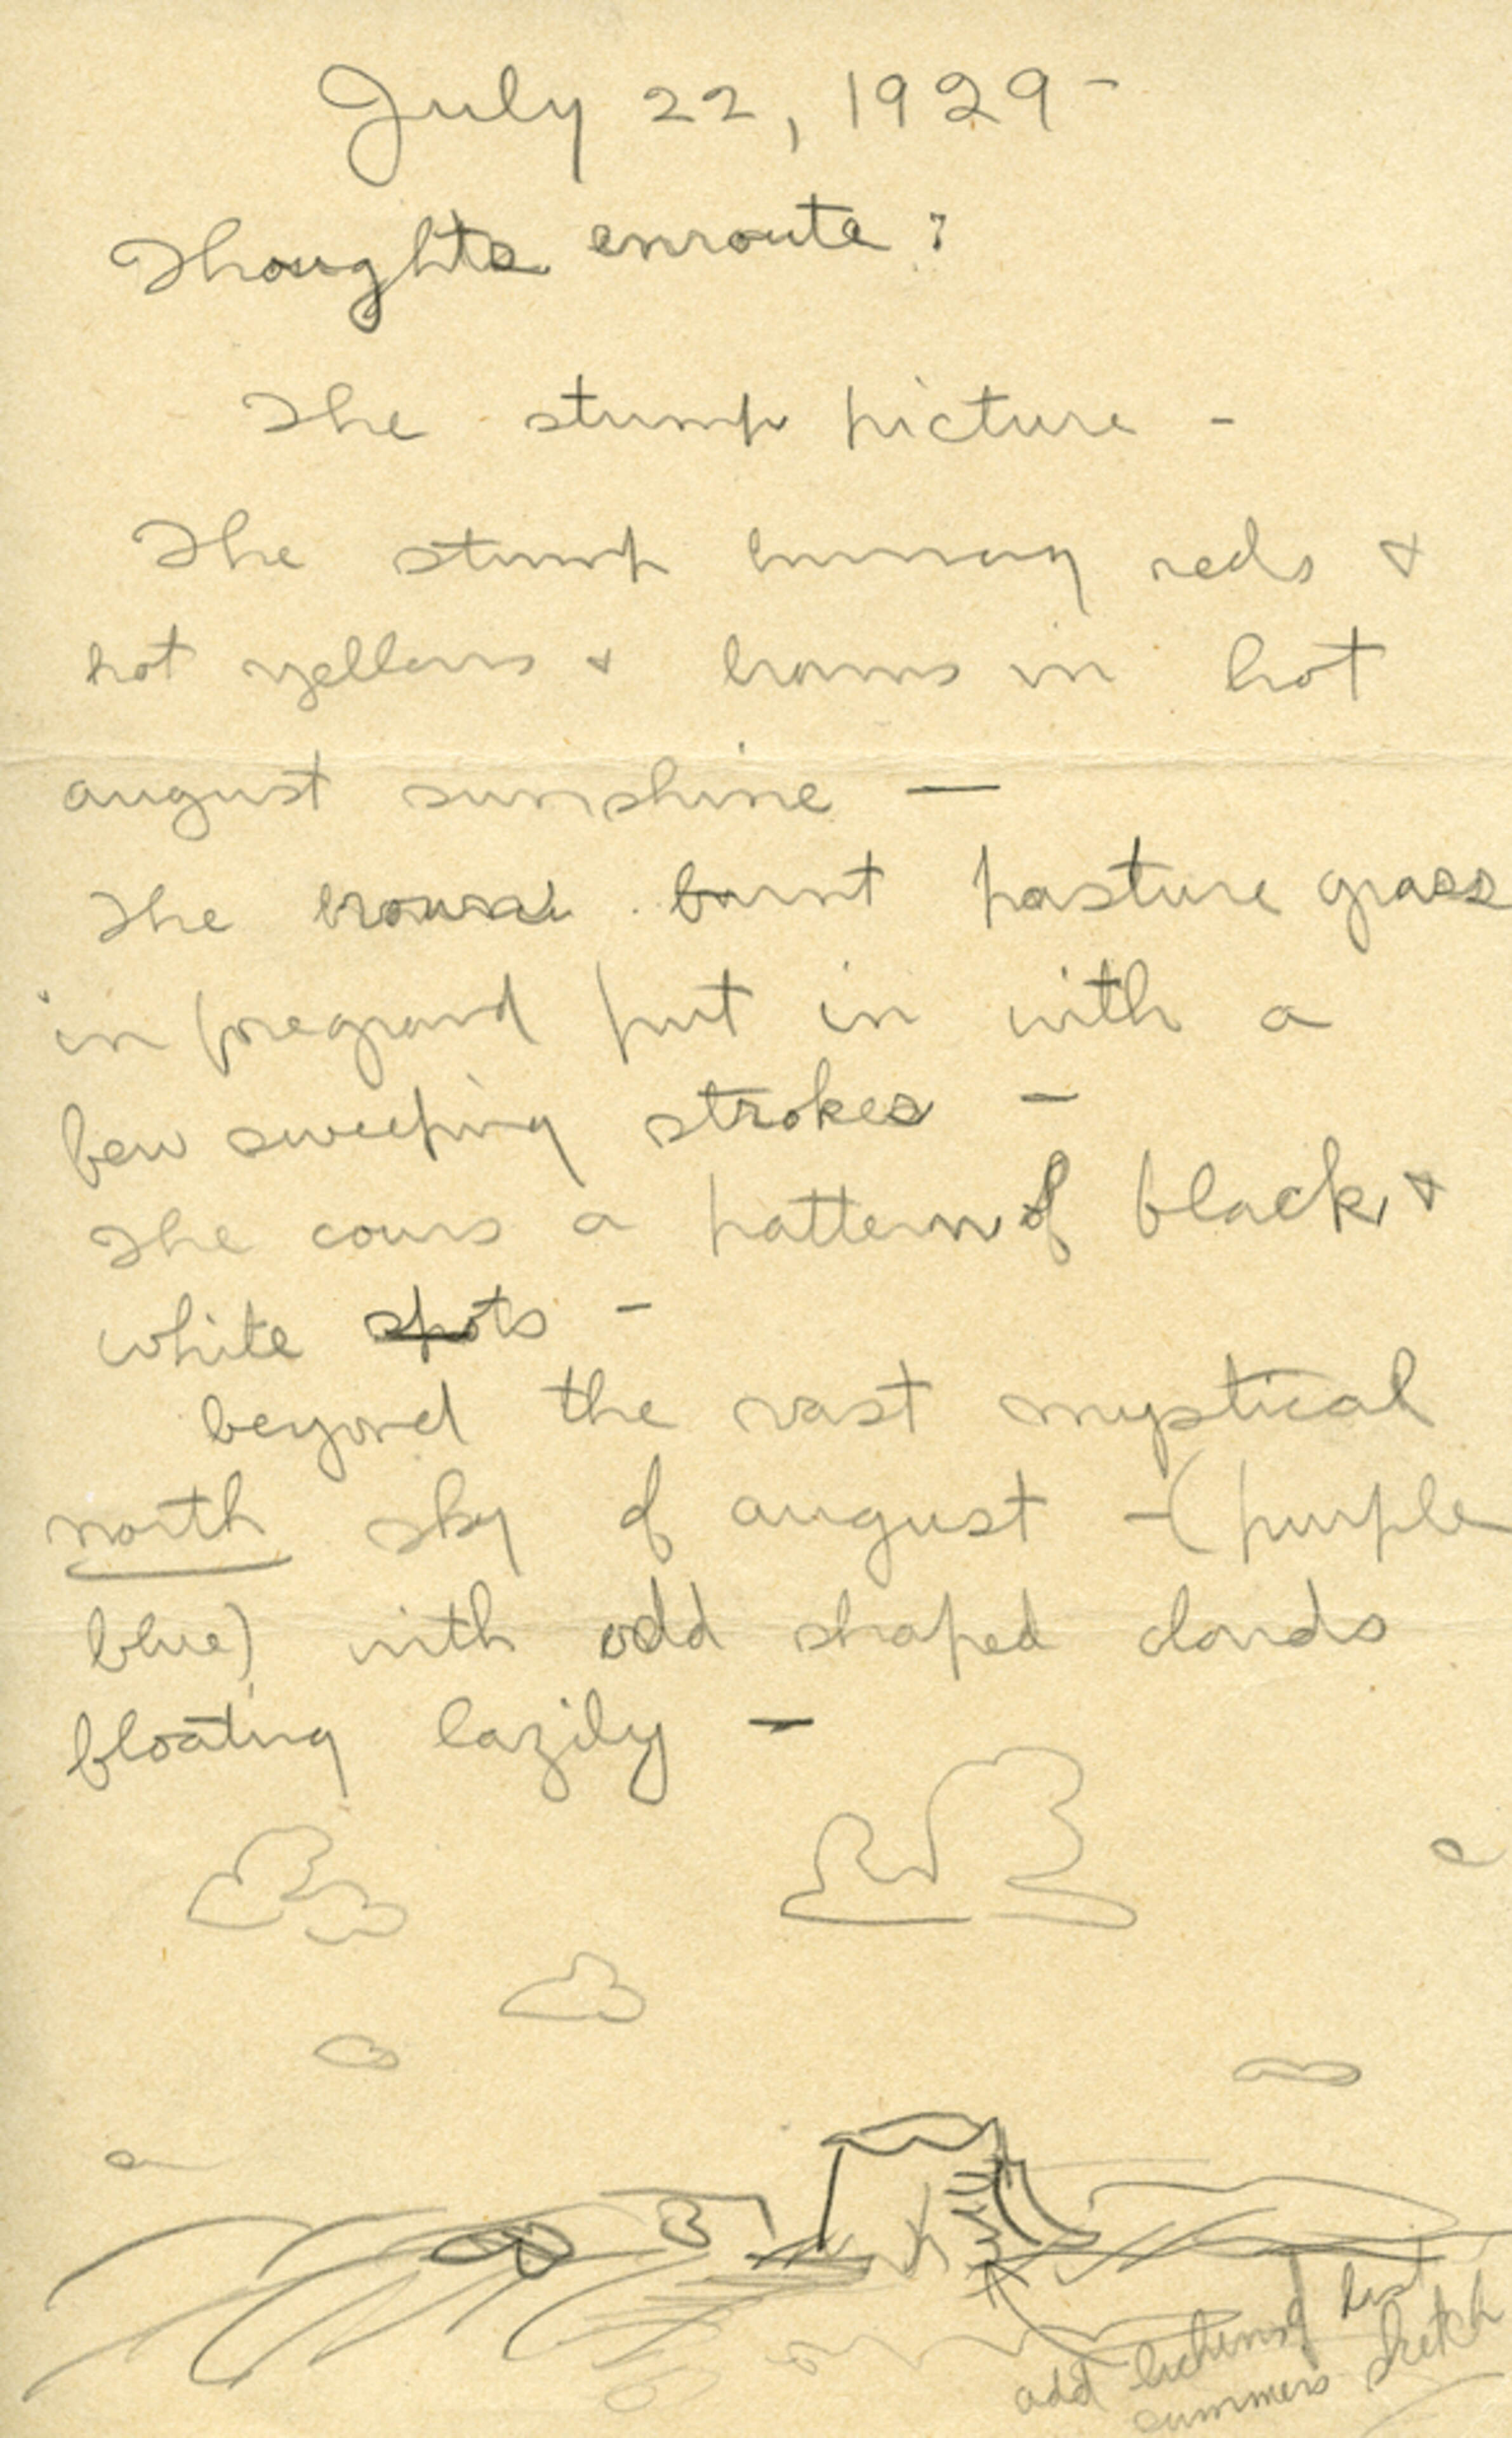 July 22, 1929 -
Thoughts enroute :
The stump picture -
The stump burning reds &
hot yellows & browns in hot
august sunshine —
The burnt pasture grass
in foreground put in with a
few sweeping strokes -
The cows a pattern of black &
white spots -
beyond the vast mystical
north sky of august - (purple
blue) with odd shaped clouds
floating lazily -
add lichens of last
summers sketch